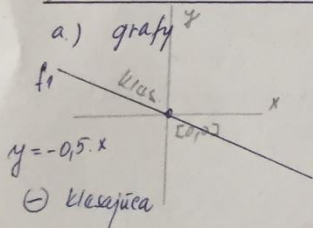 a.) grafy
y
f1
klas.
x
[0,0]
y = -0,5·x
⊖ klesajúca